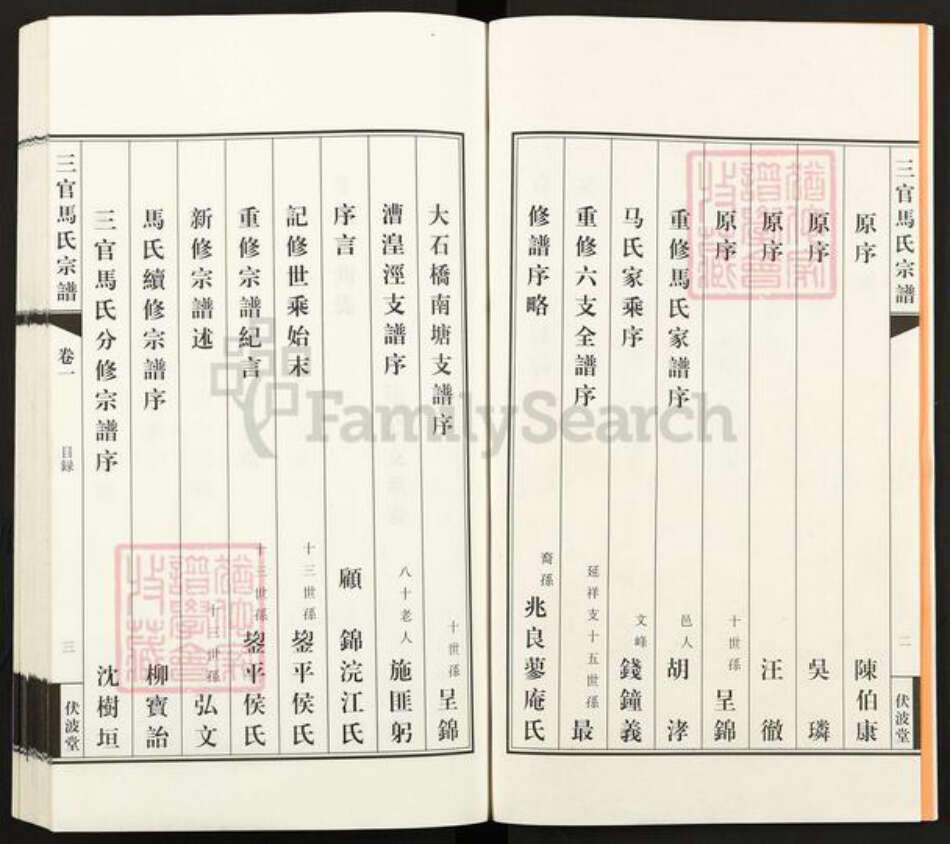 三官馬氏宗譜
二
伏波堂
原序 陳伯康
原序 吳璘
原序 汪徹
原序 十世孫 呈錦
重修馬氏家譜序 邑人 胡涍
马氏家乘序 文峰 錢鐘義
重修六支全譜序 延祥支十五世孫 最
修譜序略 裔孫 兆良蓼庵氏
大石橋南塘支譜序 十世孫 呈錦
漕湟涇支譜序 八十老人 施匪躬
序言 顧錦浣江氏
記修世乘始末 十三世孫 鋆平侯氏
重修宗譜紀言 十三世孫 鋆平侯氏
新修宗譜述 十三世孫 弘文
馬氏續修宗譜序 柳寶詒
三官馬氏分修宗譜序 沈樹垣
三官馬氏宗譜
卷一
目録
三
伏波堂
FamilySearch